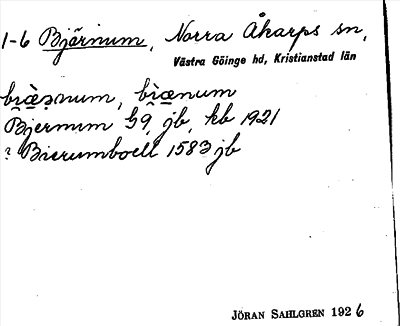 1-6 Bjärnum, Norra Åkarps sn,
Västra Göinge hd, Kristianstad län
bi̯æ̀rnum, bi̯æ̀num
Bjernum G9, jb, kb 1921
? Bierumboell 1583 jb
JÖRAN SAHLGREN 1926